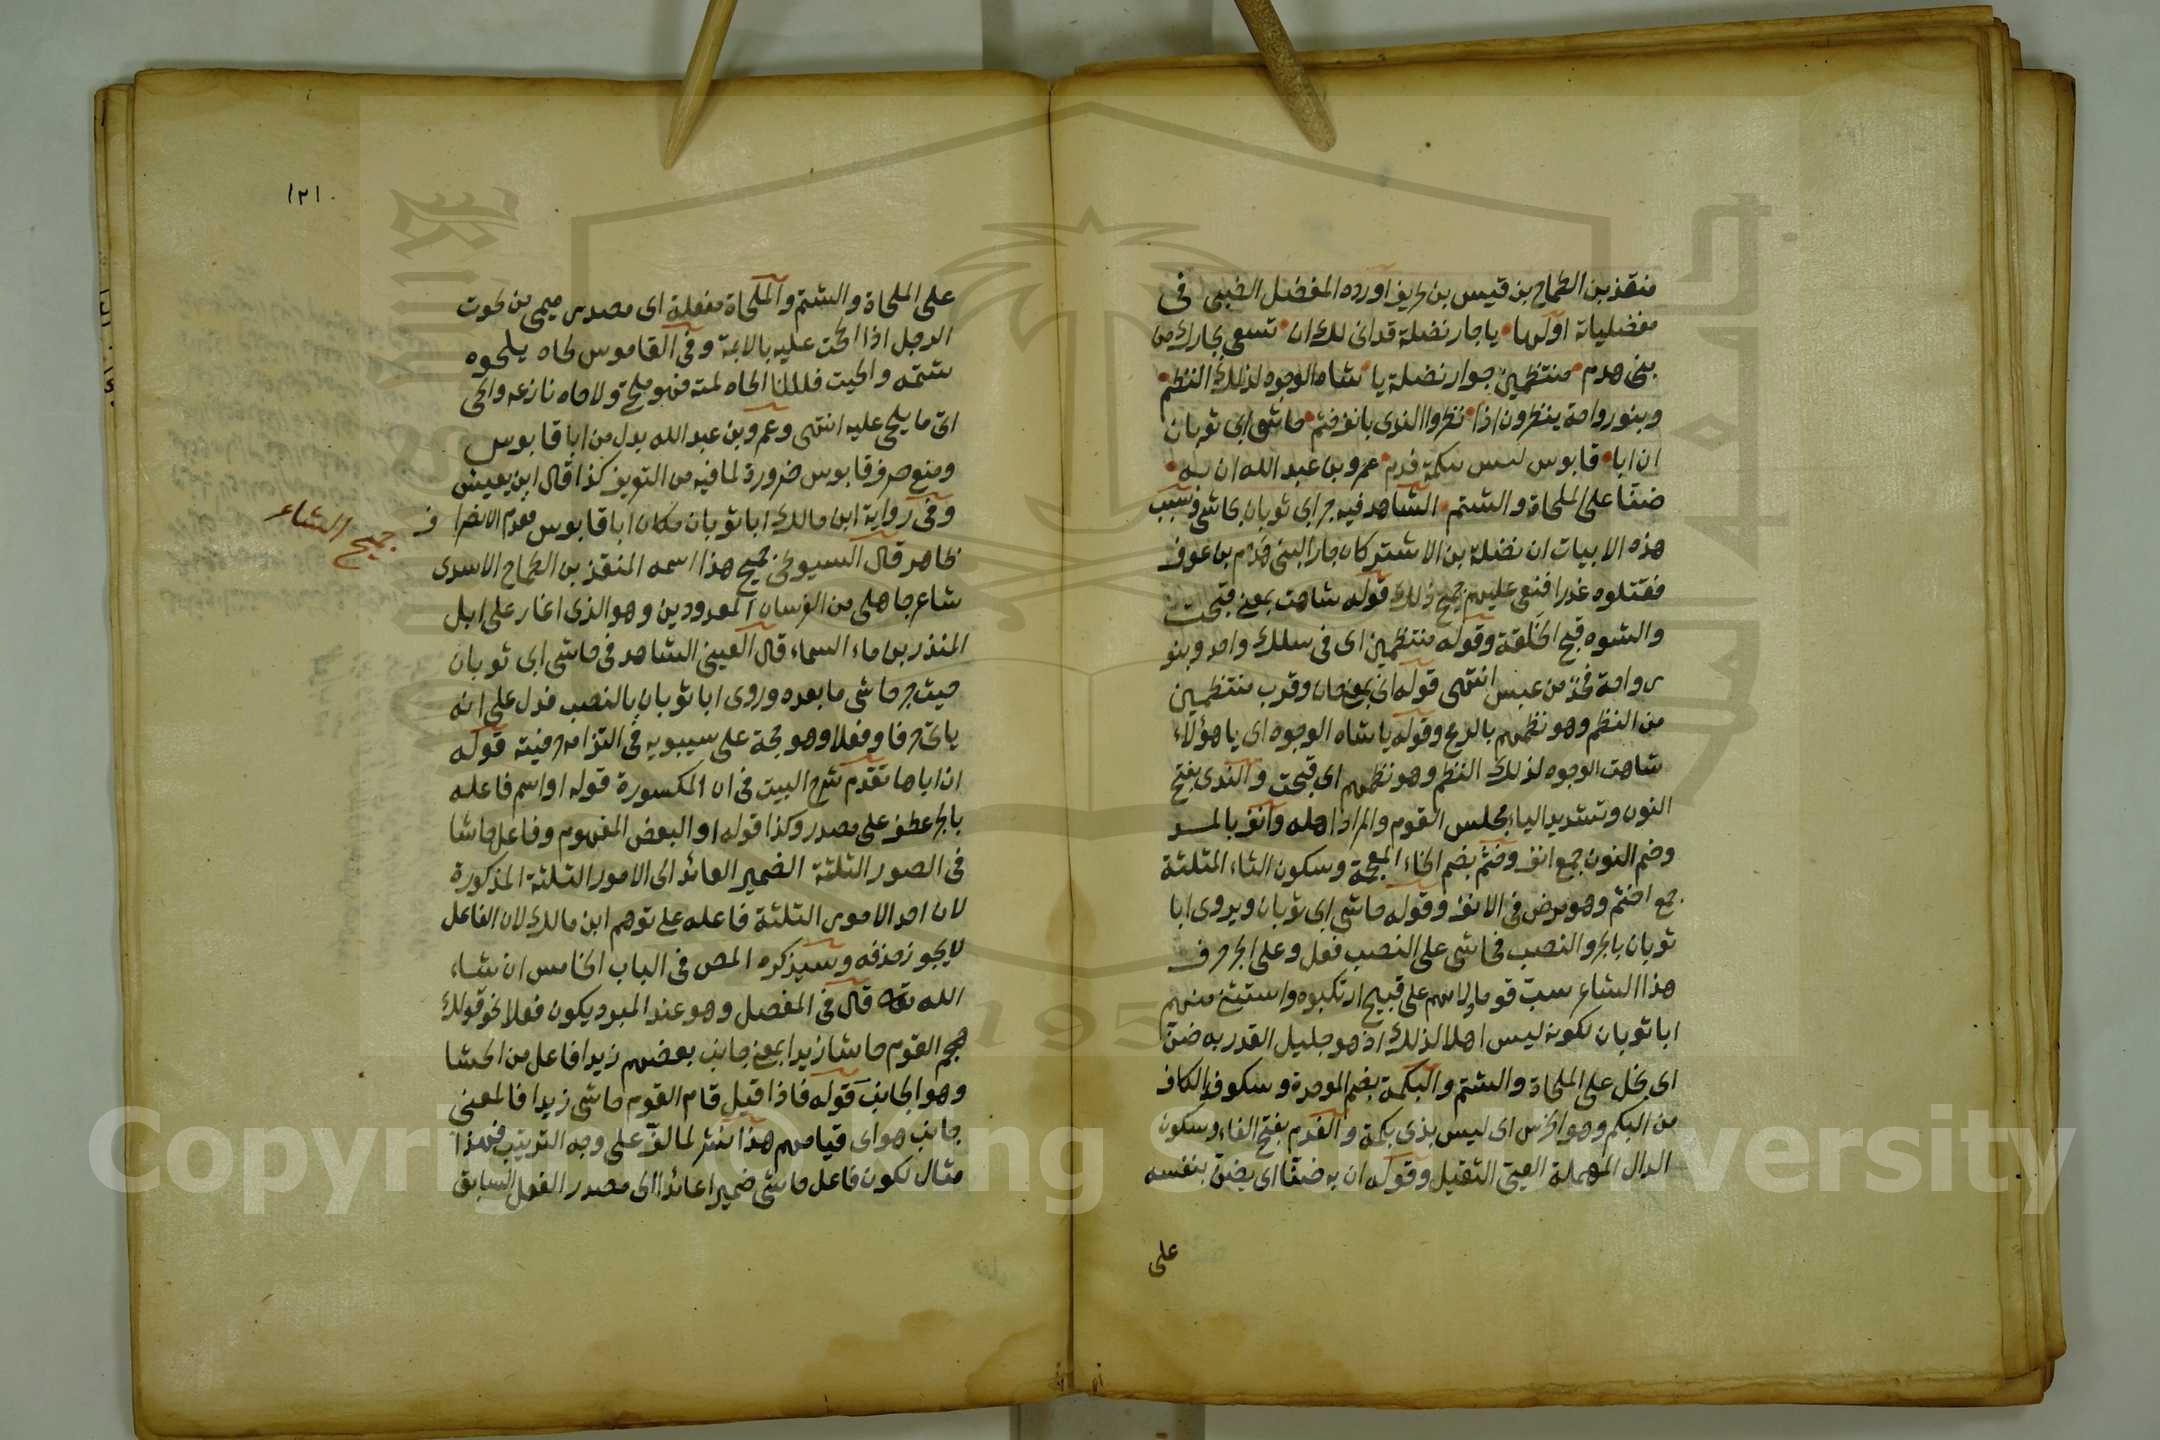 منقذ بن الطماح بن قيس بن طريف اورده المفضل الضبى فى
مفضلياته اولها • يا جار نضلة قد انى لك ان • تسعى بجارك من
بنى هدم • منتظمين جوار نضلة يا • شاه الوجوه لذلك النظم •
وبنو رواحة ينظرون اذا • نظروا الندى بانف خثم • حاشى ابى ثوبان
ان ابا • قابوس ليس ببكمة فدم • عمرو بن عبد الله ان به •
ضنّا على الملحاة والشتم • الشاهد فيه جر ابى ثوبان بحاشى وسبب
هذه الابيات ان نضلة بن الاشتر كان جار البنى هدم بن عوف
فقتلوه غدرا فنعى عليهم جميح ذلك قوله شاهت بمعنى قبحت
والشوه قبح الخلقة وقوله منتظمين اى فى سلك واحد وبنو
رواحة فخذ من عبس انتهى قوله انى بمعنى حان وقرب منتظمين
من النظم وهو نظمهم بالرمح وقوله يا شاه الوجوه اى يا هؤلاء
شاهت الوجوه لذلك النظم وهو نظمهم اى قبحت والندى بفتح
النون وتشديد الياء مجلس القوم والمراد اهله وآنف بالمد
وضم النون جمع انف وخثم بضم الخاء المعجمة وسكون الثاء المثلثة
جمع اخثم وهو عرض فى الانف وقوله حاشى ابى ثوبان ويروى ابا
ثوبان بالجر والنصب فحاشى على النصب فعل وعلى الجر حرف
هذا الشاعر سبّ قوما ولامهم على قبيح ارتكبوه واستثنى منهم
ابا ثوبان لكونه ليس اهلا لذلك اذ هو جليل القدر به ضنّ
اى بخل على الملحاة والشتم والبكمة بضم الموحدة وسكون الكاف
من البكم وهو الخرس اى ليس بذى بكمة والفدم بفتح الفاء وسكون
الدال المهملة العيىّ الثقيل وقوله ان به ضنّا اى يضنّ بنفسه
على
١٢١
على الملحاة والشتم والملحاة مفعلة اى مصدر ميمى من لحوت
الرجل اذا الححت عليه بالائمة وفى القاموس لحاه يلحوه
شتمه والحيت فلانا الحاه لمته فهو ملحىّ ولاحاه نازعه والحى
اتى ما يلحى عليه انتهى وعمرو بن عبد الله بدل من ابا قابوس
ومنع صرف قابوس ضرورة لما فيه من التعريف كذا قال ابن يعيش
وفى رواية ابن مالك ابا ثوبان مكان ابا قابوس فعدم الانصراف
ظاهر قال السيوطى جميح هذا اسمه المنقذ بن الطماح الاسدى
شاعر جاهلى من الفرسان المعدودين وهو الذى اغار على ابل
المنذر بن ماء السماء قال العينى الشاهد فى حاشى ابى ثوبان
حيث جر حاشى ما بعده وروى ابا ثوبان بالنصب فدل على انه
ياتى حرفا وفعلا وهو حجة على سيبويه فى التزام حرفيته قوله
ان اباها تقدم شرح البيت فى ان المكسورة قوله او اسم فاعله
بالجر عطف على مصدر وكذا قوله او البعض المفهوم وفاعل حاشا
فى الصور الثلثة الضمير العائد الى الامور الثلثة المذكورة
لان احد الامور الثلثة فاعله على توهم ابن مالك لان الفاعل
لا يجوز حذفه وسيذكره المص فى الباب الخامس ان شاء
الله تع قال فى المفصل وهو عند المبرد يكون فعلا نحو قولك
هجم القوم حاشا زيدا بمعنى جانب بعضهم زيدا فاعل من الحشا
وهو الجانب قوله فاذا قيل قام القوم حاشى زيدا فالمعنى
جانب هو اى قيامهم هذا نشر لما لفّ على وجه الترتيب فهذا
مثال لكون فاعل حاشى ضميرا عائدا الى مصدر الفعل السابق
جميح الشاعر
Copyright © King Saud University